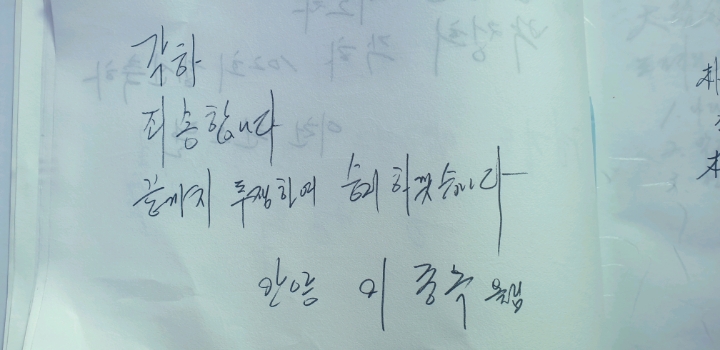 각하
죄송합니다
끝까지 투쟁하여 승리하겠습니다
안양 이종수 올림
朴
本